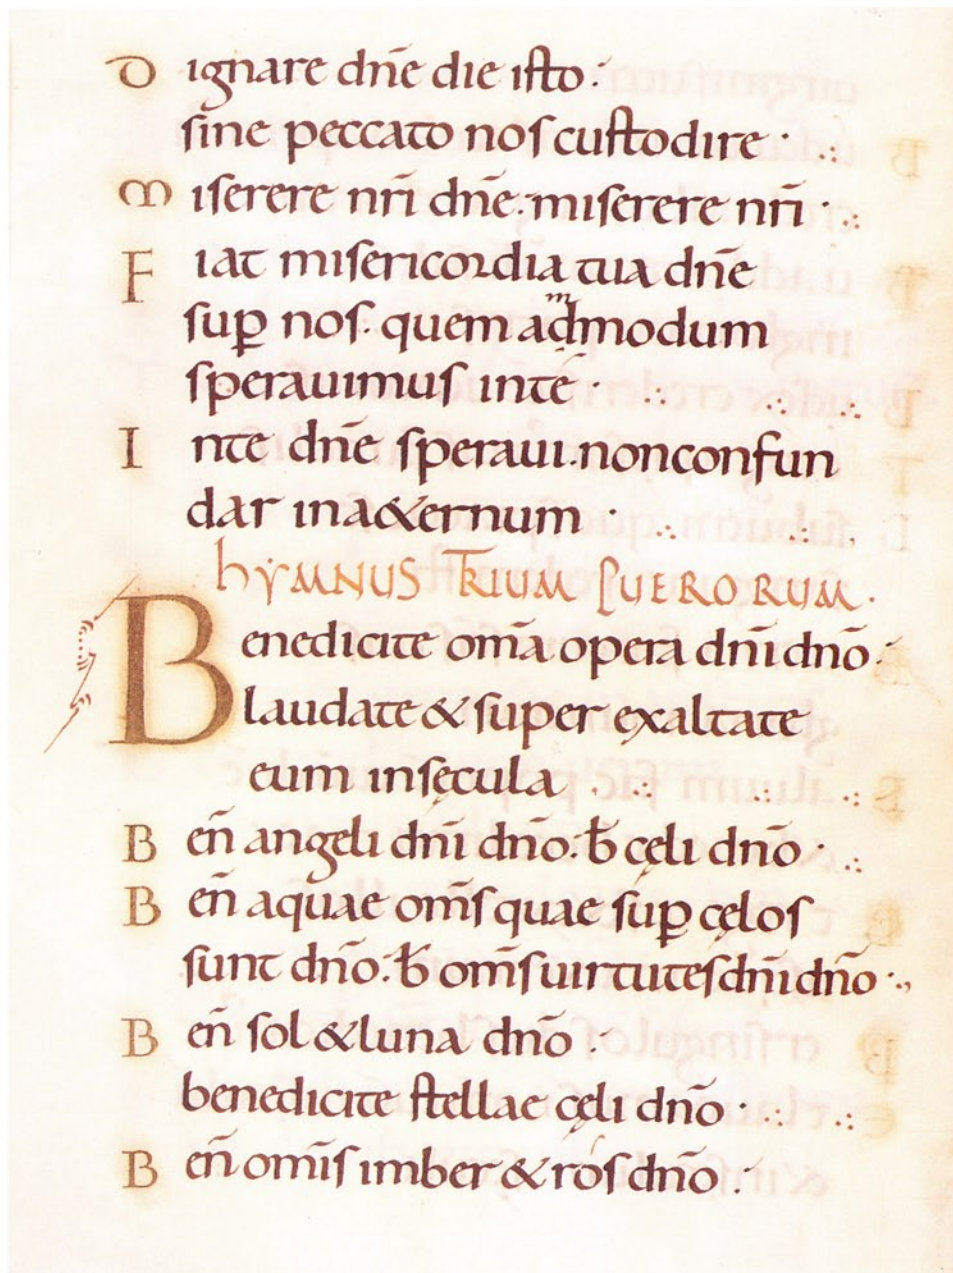 Dignare dn̄e die isto:
sine peccato nos custodire ·
Miserere nr̄i dn̄e: miserere nr̄i ·
Fiat misericordia tua dn̄e
sup̱ nos. quem admodum
sperauimus inte ·
Inte dn̄e speraui. nonconfun
dar ina&ernum ·
hYMNUS TRIUM PUERORUM.
Benedicite om̄a opera dn̄i dn̄o:
laudate & super exaltate
eum insęcula
Ben̄ angeli dn̄i dn̄o: b̄ cęli dn̄o ·
Ben̄ aquae om̄s quae sup̱ cęlos
sunt dn̄o: b̄ om̄s uirtutes dn̄i dn̄o ·
Ben̄ sol & luna dn̄o :
benedicite stellae cęli dn̄o ·
Ben̄ om̄is imber & ros dn̄o :